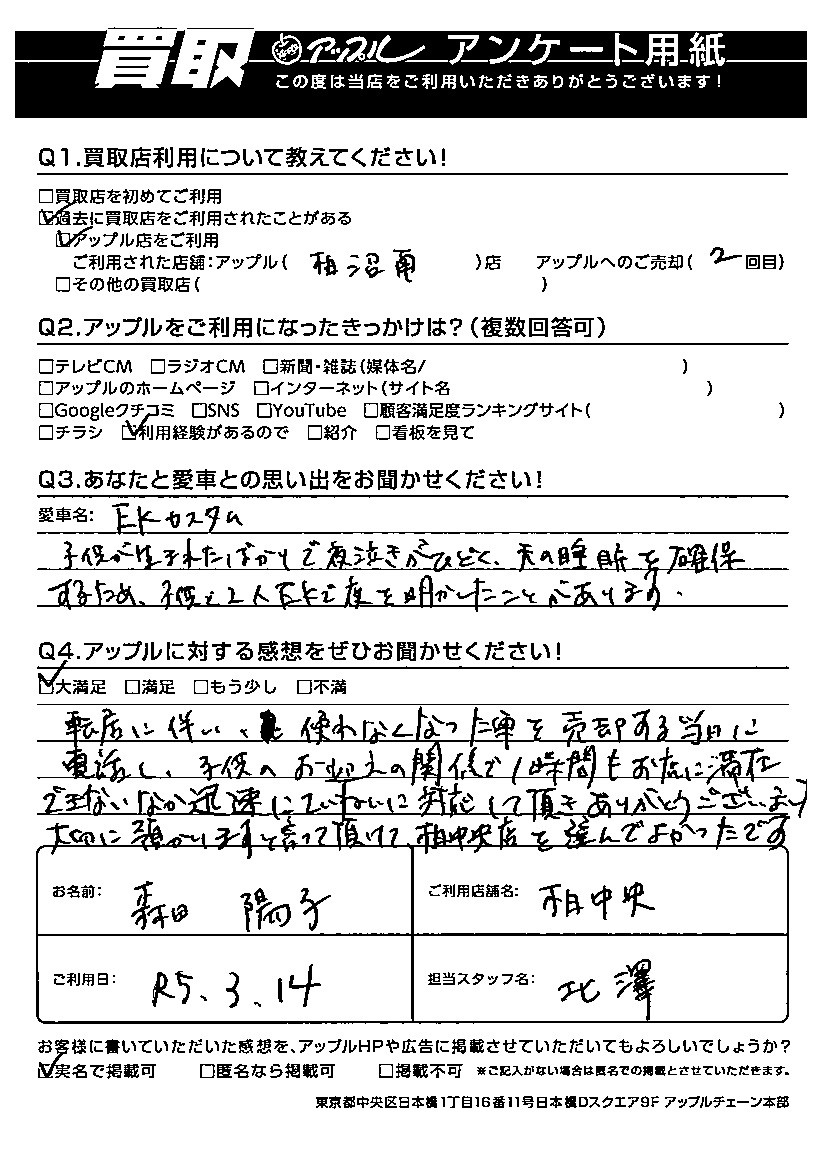 買取 アップル アンケート用紙
この度は当店をご利用いただきありがとうございます!
Q1.買取店利用について教えてください!
□買取店を初めてご利用
☑過去に買取店をご利用されたことがある
☑アップル店をご利用
ご利用された店舗:アップル( 柏沼南 )店 アップルへのご売却( 2 回目)
□その他の買取店( )
Q2.アップルをご利用になったきっかけは?(複数回答可)
□テレビCM □ラジオCM □新聞・雑誌(媒体名/ )
□アップルのホームページ □インターネット(サイト名 )
□Googleクチコミ □SNS □YouTube □顧客満足度ランキングサイト( )
□チラシ ☑利用経験があるので □紹介 □看板を見て
Q3.あなたと愛車との思い出をお聞かせください!
愛車名: EKカスタム
子供が生まれたばかりで夜泣きがひどく、夫の睡眠を確保
するため、子供と2人EKで夜を明かしたことがあります。
Q4.アップルに対する感想をぜひお聞かせください!
☑大満足 □満足 □もう少し □不満
転居に伴い、使わなくなった車を売却する当日に
電話し、子供のお迎えの関係で1時間もお店に滞在
できないなか迅速にていねいに対応して頂きありがとうございます
大切に預かりますと言って頂けて、柏中央店を選んでよかったです
お名前: 森田 陽子
ご利用店舗名: 柏中央
ご利用日: R5.3.14
担当スタッフ名: 北澤
お客様に書いていただいた感想を、アップルHPや広告に掲載させていただいてもよろしいでしょうか?
☑実名で掲載可 □匿名なら掲載可 □掲載不可 ※ご記入がない場合は匿名での掲載とさせていただきます。
東京都中央区日本橋1丁目16番11号日本橋Dスクエア9F アップルチェーン本部